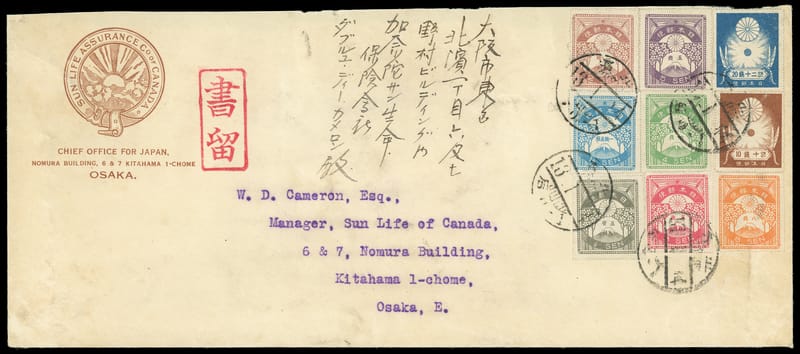 SUN LIFE ASSURANCE Co OF CANADA
CHIEF OFFICE FOR JAPAN,
NOMURA BUILDING, 6 & 7 KITAHAMA 1-CHOME
OSAKA.
書留
大阪市東区
北濱一丁目六及七
野村ビルディング内
加奈陀サン生命
保険会社
ダブルユーディーカメロン殿
W. D. Cameron, Esq.,
Manager, Sun Life of Canada,
6 & 7, Nomura Building,
Kitahama 1-chome,
Osaka, E.
便郵本日
便郵本日
20 錢十二 20
便郵本日
便郵本日
4 SEN
10 錢十 10
便郵本日
便郵本日
便郵本日